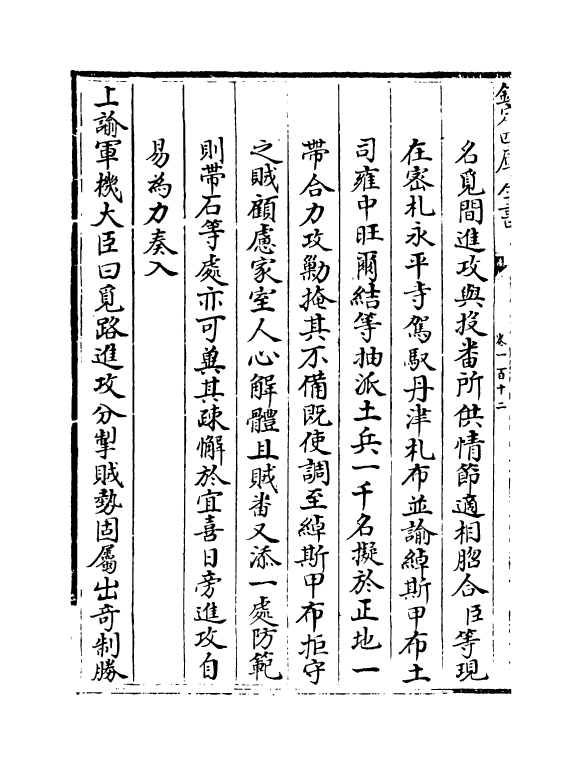 欽定四庫全書
卷一百十二
名覓間進攻與投番所供情節適相脗合臣等現
在密札永平寺駕馭丹津札布並諭綽斯甲布土
司雍中旺爾結等抽派土兵一千名擬於正地一
帶合力攻勦掩其不備既使調至綽斯甲布拒守
之賊顧慮家室人心解體且賊番又添一處防範
則帶石等處亦可兾其疎懈於宜喜日旁進攻自
易為力奏入
上諭軍機大臣曰覓路進攻分掣賊勢固屬出奇制勝